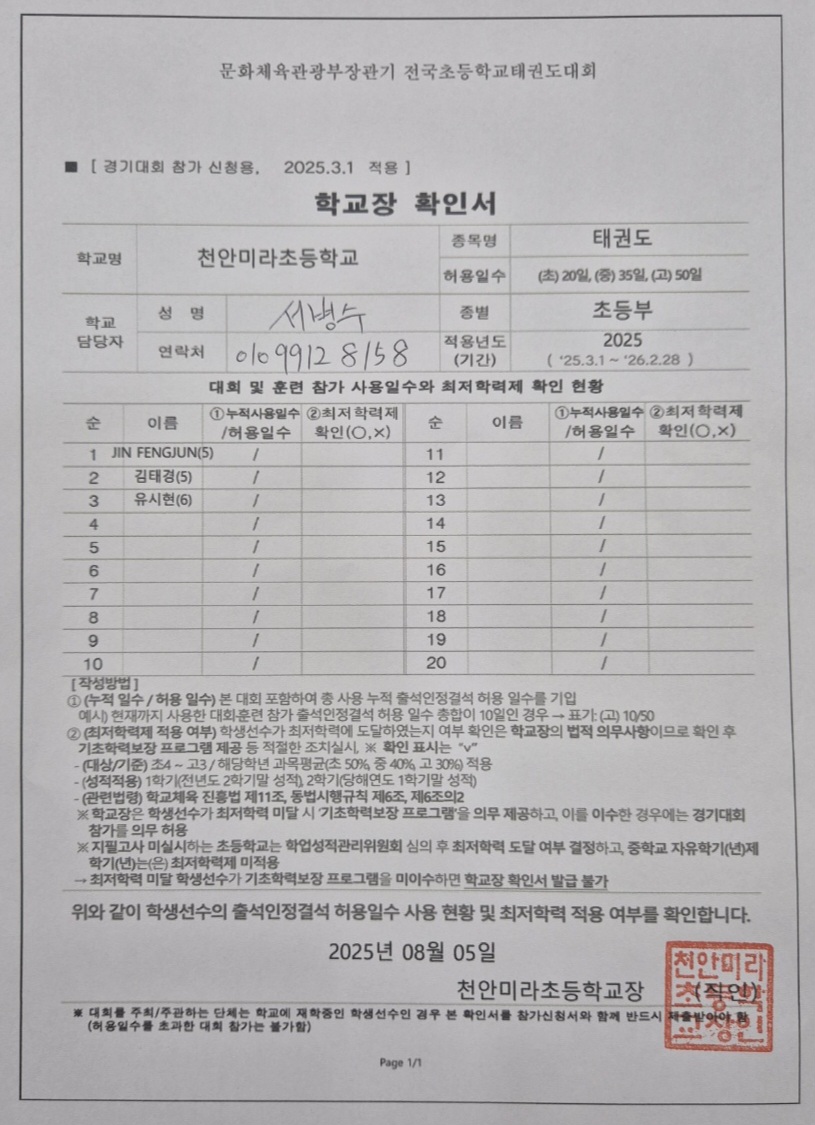 문화체육관광부장관기 전국초등학교태권도대회
■ [ 경기대회 참가 신청용, 2025.3.1 적용 ]
학교장 확인서
학교명 천안미라초등학교 종목명 태권도
허용일수 (초) 20일, (중) 35일, (고) 50일
학교 담당자 성 명 서병수 종별 초등부
연락처 010 9912 8158 적용년도 (기간) 2025 ( '25.3.1 ~ '26.2.28 )
대회 및 훈련 참가 사용일수와 최저학력제 확인 현황
순 이름 ①누적사용일수 /허용일수 ②최저학력제 확인(○,×) 순 이름 ①누적사용일수 /허용일수 ②최저학력제 확인(○,×)
1 JIN FENGJUN(5) / 11 /
2 김태경(5) / 12 /
3 유시현(6) / 13 /
4 / 14 /
5 / 15 /
6 / 16 /
7 / 17 /
8 / 18 /
9 / 19 /
10 / 20 /
[ 작성방법 ]
① (누적 일수 / 허용 일수) 본 대회 포함하여 총 사용 누적 출석인정결석 허용 일수를 기입
예시) 현재까지 사용한 대회·훈련 참가 출석인정결석 허용 일수 총합이 10일인 경우 → 표기: (고) 10/50
② (최저학력제 적용 여부) 학생선수가 최저학력에 도달하였는지 여부 확인은 학교장의 법적 의무사항이므로 확인 후
기초학력보장 프로그램 제공 등 적절한 조치실시, ※ 확인 표시는 "v"
- (대상/기준) 초4 ~ 고3 / 해당학년 과목평균(초 50%, 중 40%, 고 30%) 적용
- (성적적용) 1학기(전년도 2학기말 성적), 2학기(당해연도 1학기말 성적)
- (관련법령) 학교체육 진흥법 제11조, 동법시행규칙 제6조, 제6조의2
※ 학교장은 학생선수가 최저학력 미달 시 '기초학력보장 프로그램'을 의무 제공하고, 이를 이수한 경우에는 경기대회
참가를 의무 허용
※ 지필고사 미실시하는 초등학교는 학업성적관리위원회 심의 후 최저학력 도달 여부 결정하고, 중학교 자유학기(년)제
학기(년)는(은) 최저학력제 미적용
→ 최저학력 미달 학생선수가 기초학력보장 프로그램을 미이수하면 학교장 확인서 발급 불가
위와 같이 학생선수의 출석인정결석 허용일수 사용 현황 및 최저학력 적용 여부를 확인합니다.
2025년 08월 05일
천안미라초등학교장 (직인)
천안미라
초등학
교장인
※ 대회를 주최/주관하는 단체는 학교에 재학중인 학생선수인 경우 본 확인서를 참가신청서와 함께 반드시 제출받아야 함
(허용일수를 초과한 대회 참가는 불가함)
Page 1/1